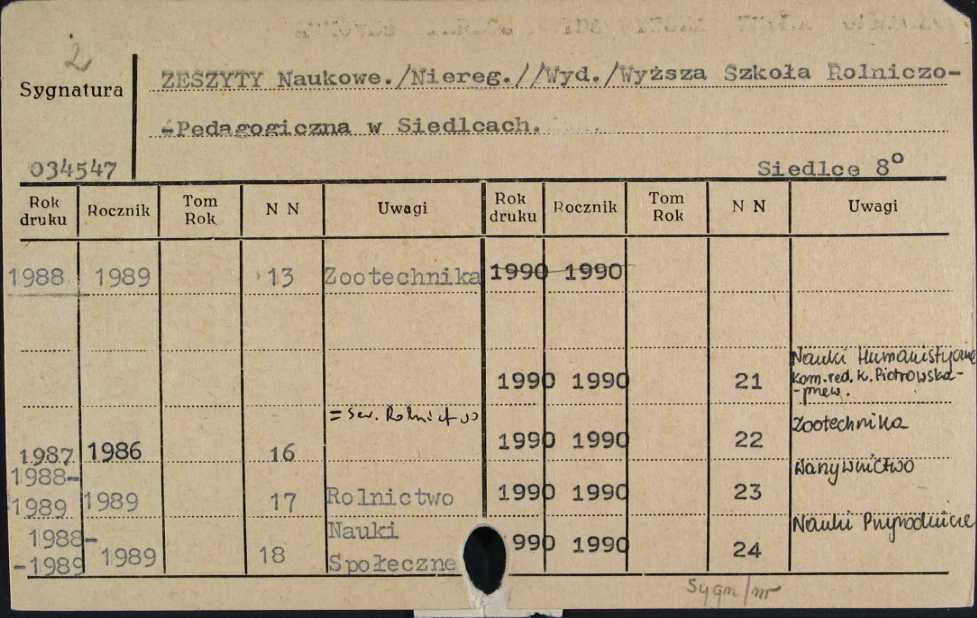 2
Sygnatura
034547
ZESZYTY Naukowe./Niereg.//Wyd./Wyższa Szkoła Rolniczo-
-Pedagogiczna w Siedlcach.
Siedlce 8°
Rok druku Rocznik Tom Rok N N Uwagi Rok druku Rocznik Tom Rok N N Uwagi
1988 1989 13 Zootechnika 1990 1990
1990 1990 21 Nauki Humanistyczne
kom.red. K. Piotrowska-
= Ser. Rolnictwo
1987 1986 16 1990 1990 22 Zootechnika
1988-
1989 1989 17 Rolnictwo 1990 1990 23 Warzywnictwo
1988-
-1989 1989 18 Nauki
Społeczne 1990 1990 24 Nauki Przyrodnicze
Sygn/nr